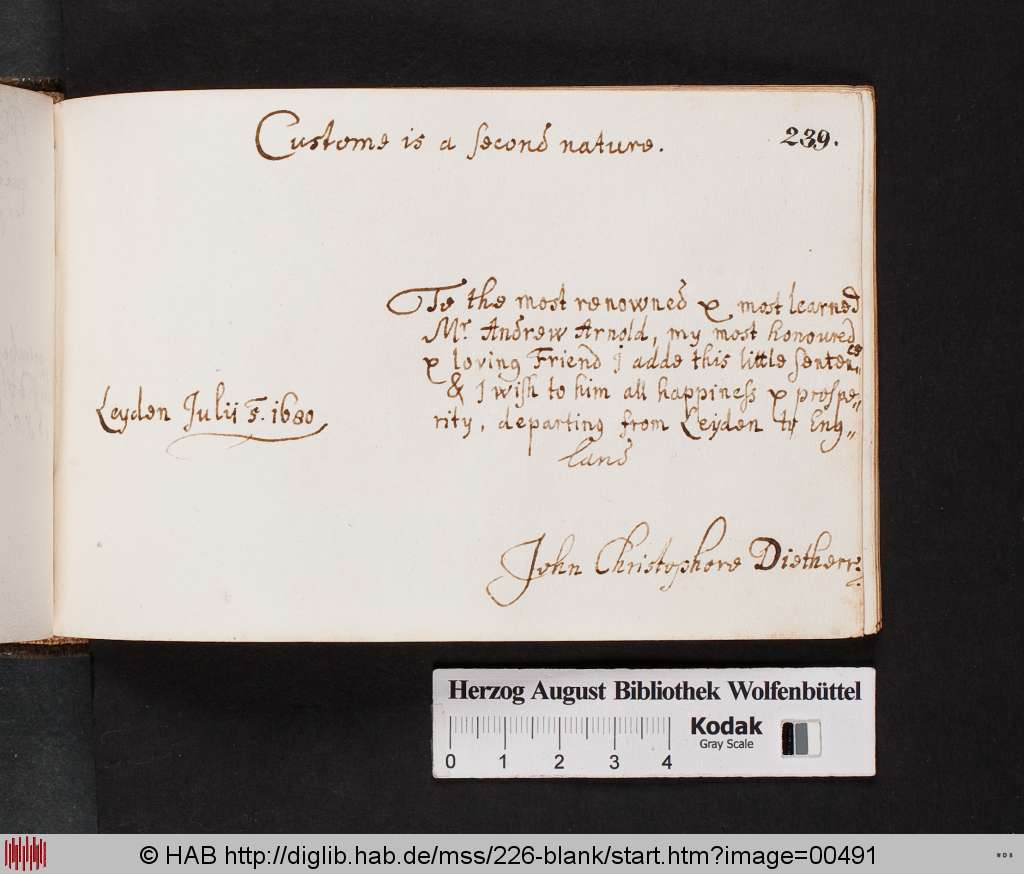 Custome is a second nature.
239.
To the most renowned & most learned
Mr. Andrew Arnold, my most honoured
& loving Friend I adde this little senten„ce
& I wish to him all happiness & prospe„
rity, departing from Leyden to Eng„
land
Leyden Julii 5. 1680
John Christophore Dietherr.
Herzog August Bibliothek Wolfenbüttel
Kodak
Gray Scale
0 1 2 3 4
© HAB http://diglib.hab.de/mss/226-blank/start.htm?image=00491
WDB